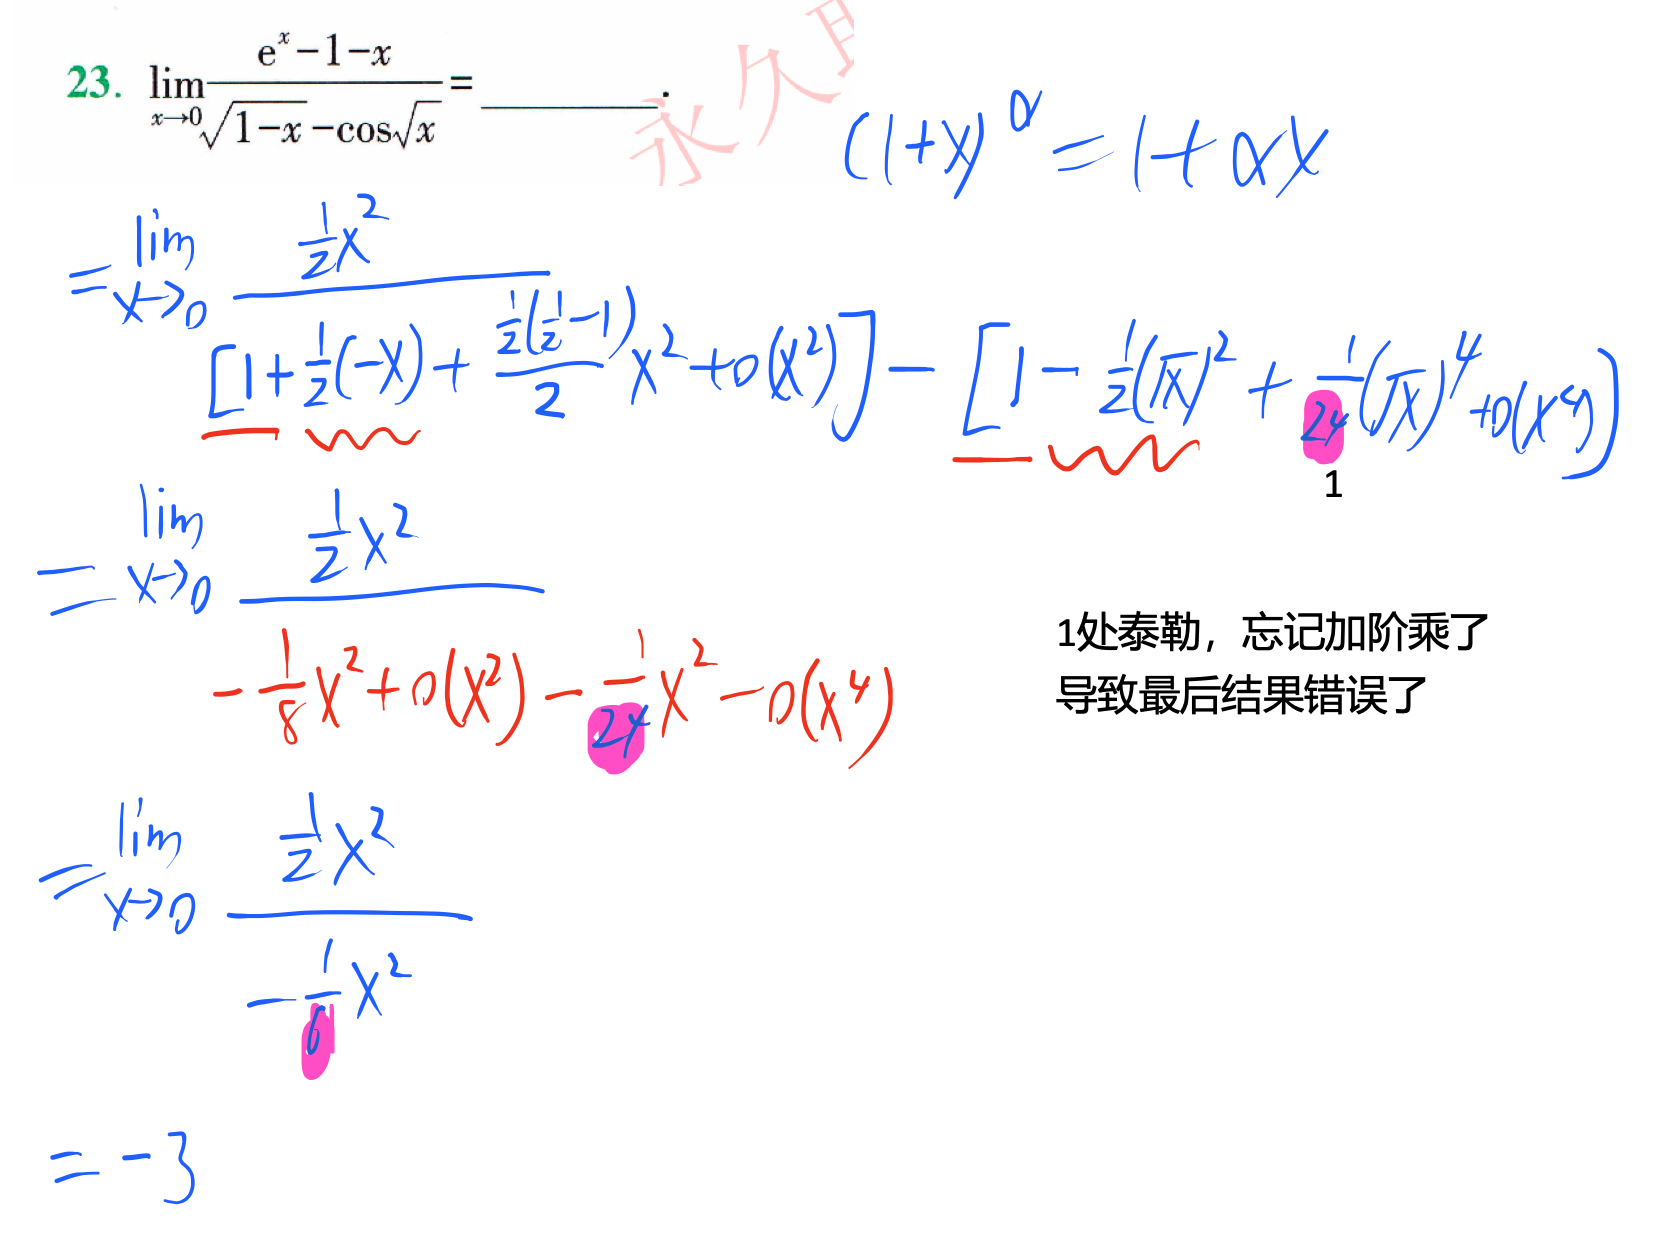 23. lim_{x→0} (e^x−1−x)/(√(1−x) −cos√x) = ________.
永久
(1+x)^α = 1+αx
= lim_{x→0} (1/2 x^2)/([1+1/2(−x)+(1/2(1/2−1))/2 x^2+o(x^2)] − [1−1/2(√x)^2+1/24(√x)^4+o(x^4)])
1
= lim_{x→0} (1/2 x^2)/(−1/8 x^2+o(x^2)−1/24 x^2−o(x^4))
1处泰勒，忘记加阶乘了
导致最后结果错误了
= lim_{x→0} (1/2 x^2)/(−1/6 x^2)
= −3